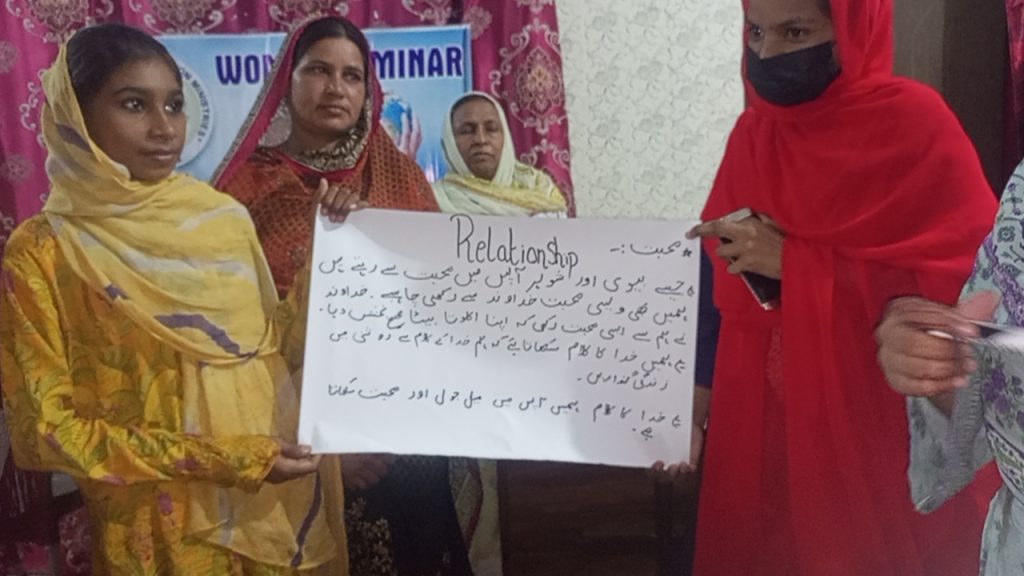 WOM MINAR
MINISTRIES
Relationship
* محبت :-
جیسے بیوی اور شوہر آپس میں محبت سے رہتے ہیں
ہمیں بھی ویسی محبت خداوند سے رکھنی چاہیے ۔ خداوند
نے ہم سے ایسی محبت رکھی کہ اپنا اکلوتا بیٹا بخش دیا۔
ہمیں خدا کا کلام سکھاتا ہے کہ ہم خدا کے کلام سے روشنی میں
زندگی گذاریں ۔
خدا کا کلام ہمیں آپس میں میل جول اور محبت سکھاتا
ہے۔